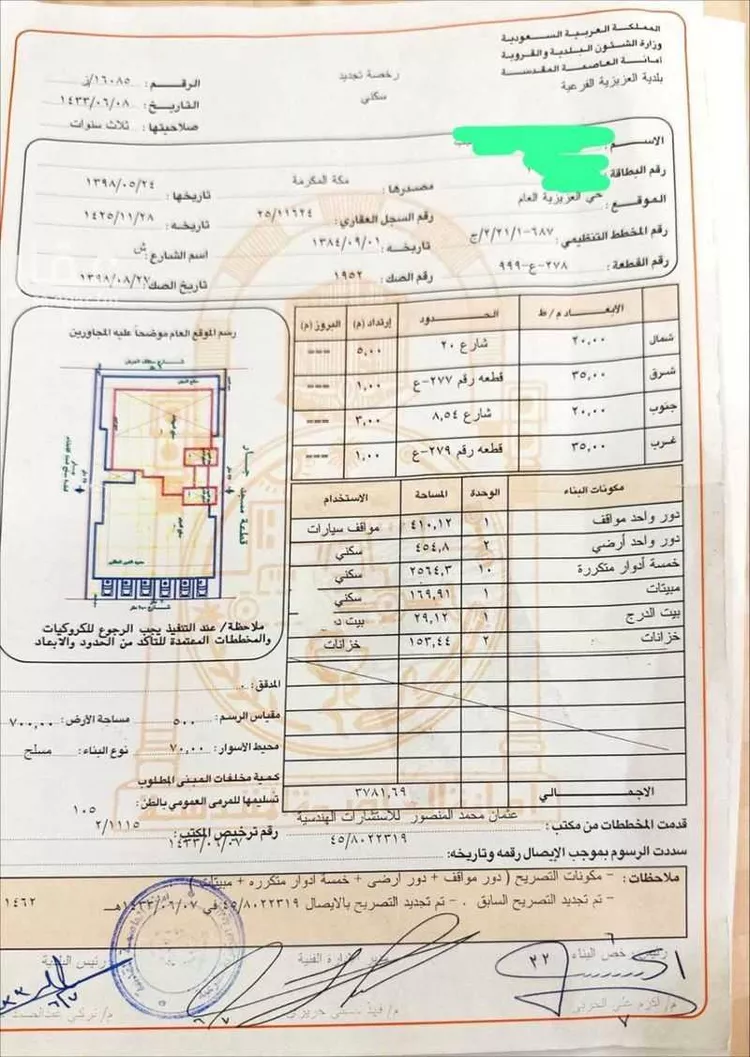 المملكة العربية السعودية
وزارة الشئون البلدية والقروية
أمانة العاصمة المقدسة
بلدية العزيزية الفرعية
رخصة تجديد
سكني
الرقم: ١٦٠٨٥/ز
التاريخ: ١٤٣٣/٠٦/٠٨
صلاحيتها: ثلاث سنوات
الاسم:
رقم البطاقة مصدرها: مكة المكرمة تاريخها: ١٣٩٨/٠٥/٢٤
الموقع: حي العزيزية العام رقم السجل العقاري: ٢٥/١١٦٢٤ تاريخه: ١٤٢٥/١١/٢٨
رقم المخطط التنظيمي: ٦٨٧-٢/٢١/١/ج تاريخه: ١٣٨٤/٠٩/٠١ اسم الشارع: ش
رقم القطعة: ٢٧٨-ع-٩٩٩ رقم الصك: ١٩٥٢ تاريخ الصك: ١٣٩٨/٠٨/٢٧
الأبعاد م/ط الحدود إرتداد (م) البروز (م)
شمال ٢٠,٠٠ شارع ٢٠ ٥,٠٠ ---
شرق ٣٥,٠٠ قطعه رقم ٢٧٧-ع ١,٠٠ ---
جنوب ٢٠,٠٠ شارع ٨,٥٤ ٣,٠٠ ---
غرب ٣٥,٠٠ قطعه رقم ٢٧٩-ع ١,٠٠ ---
رسم الموقع العام موضحاً عليه المجاورين
ملاحظة/ عند التنفيذ يجب الرجوع للكروكيات
والمخططات المعتمدة للتأكد من الحدود والابعاد
مكونات البناء الوحدة المساحة الاستخدام
دور واحد مواقف ١ ٤١٠,١٢ مواقف سيارات
دور واحد أرضي ٢ ٤٥٤,٨ سكني
خمسة أدوار متكررة ١٠ ٢٥٦٤,٣ سكني
مبيتات ١ ١٦٩,٩١ سكني
بيت الدرج ١ ٢٩,١٢ بيت د
خزانات ٢ ١٥٣,٤٤ خزانات
الاجمالي ٣٧٨١,٦٩
المدقق:
مقياس الرسم: ٥٠٠ مساحة الأرض: ٧٠٠,٠٠
محيط الاسوار: ٧٠,٠٠ نوع البناء: مسلح
كمية مخلفات المبنى المطلوب
تسليمها للمرمى العمومي بالطن: ١٠٥
قدمت المخططات من مكتب: عثمان محمد المنصور للاستشارات الهندسية رقم ترخيص المكتب: ٢/١١١٥
سددت الرسوم بموجب الإيصال رقمه وتاريخه: ٤٥/٨٠٢٢٣١٩ ١٤٣٣/٠٦/٠٧
ملاحظات: - مكونات التصريح ( دور مواقف + دور أرضى + خمسة أدوار متكرره + مبيتات )
- تم تجديد التصريح السابق . - تم تجديد التصريح بالايصال ٤٥/٨٠٢٢٣١٩ في ١٤٣٣/٠٦/٠٧هـ
١٤٦٢
رئيس رخص البناء
الإدارة الفنية
رئيس البلدية
م/ أكرم علي الحربي